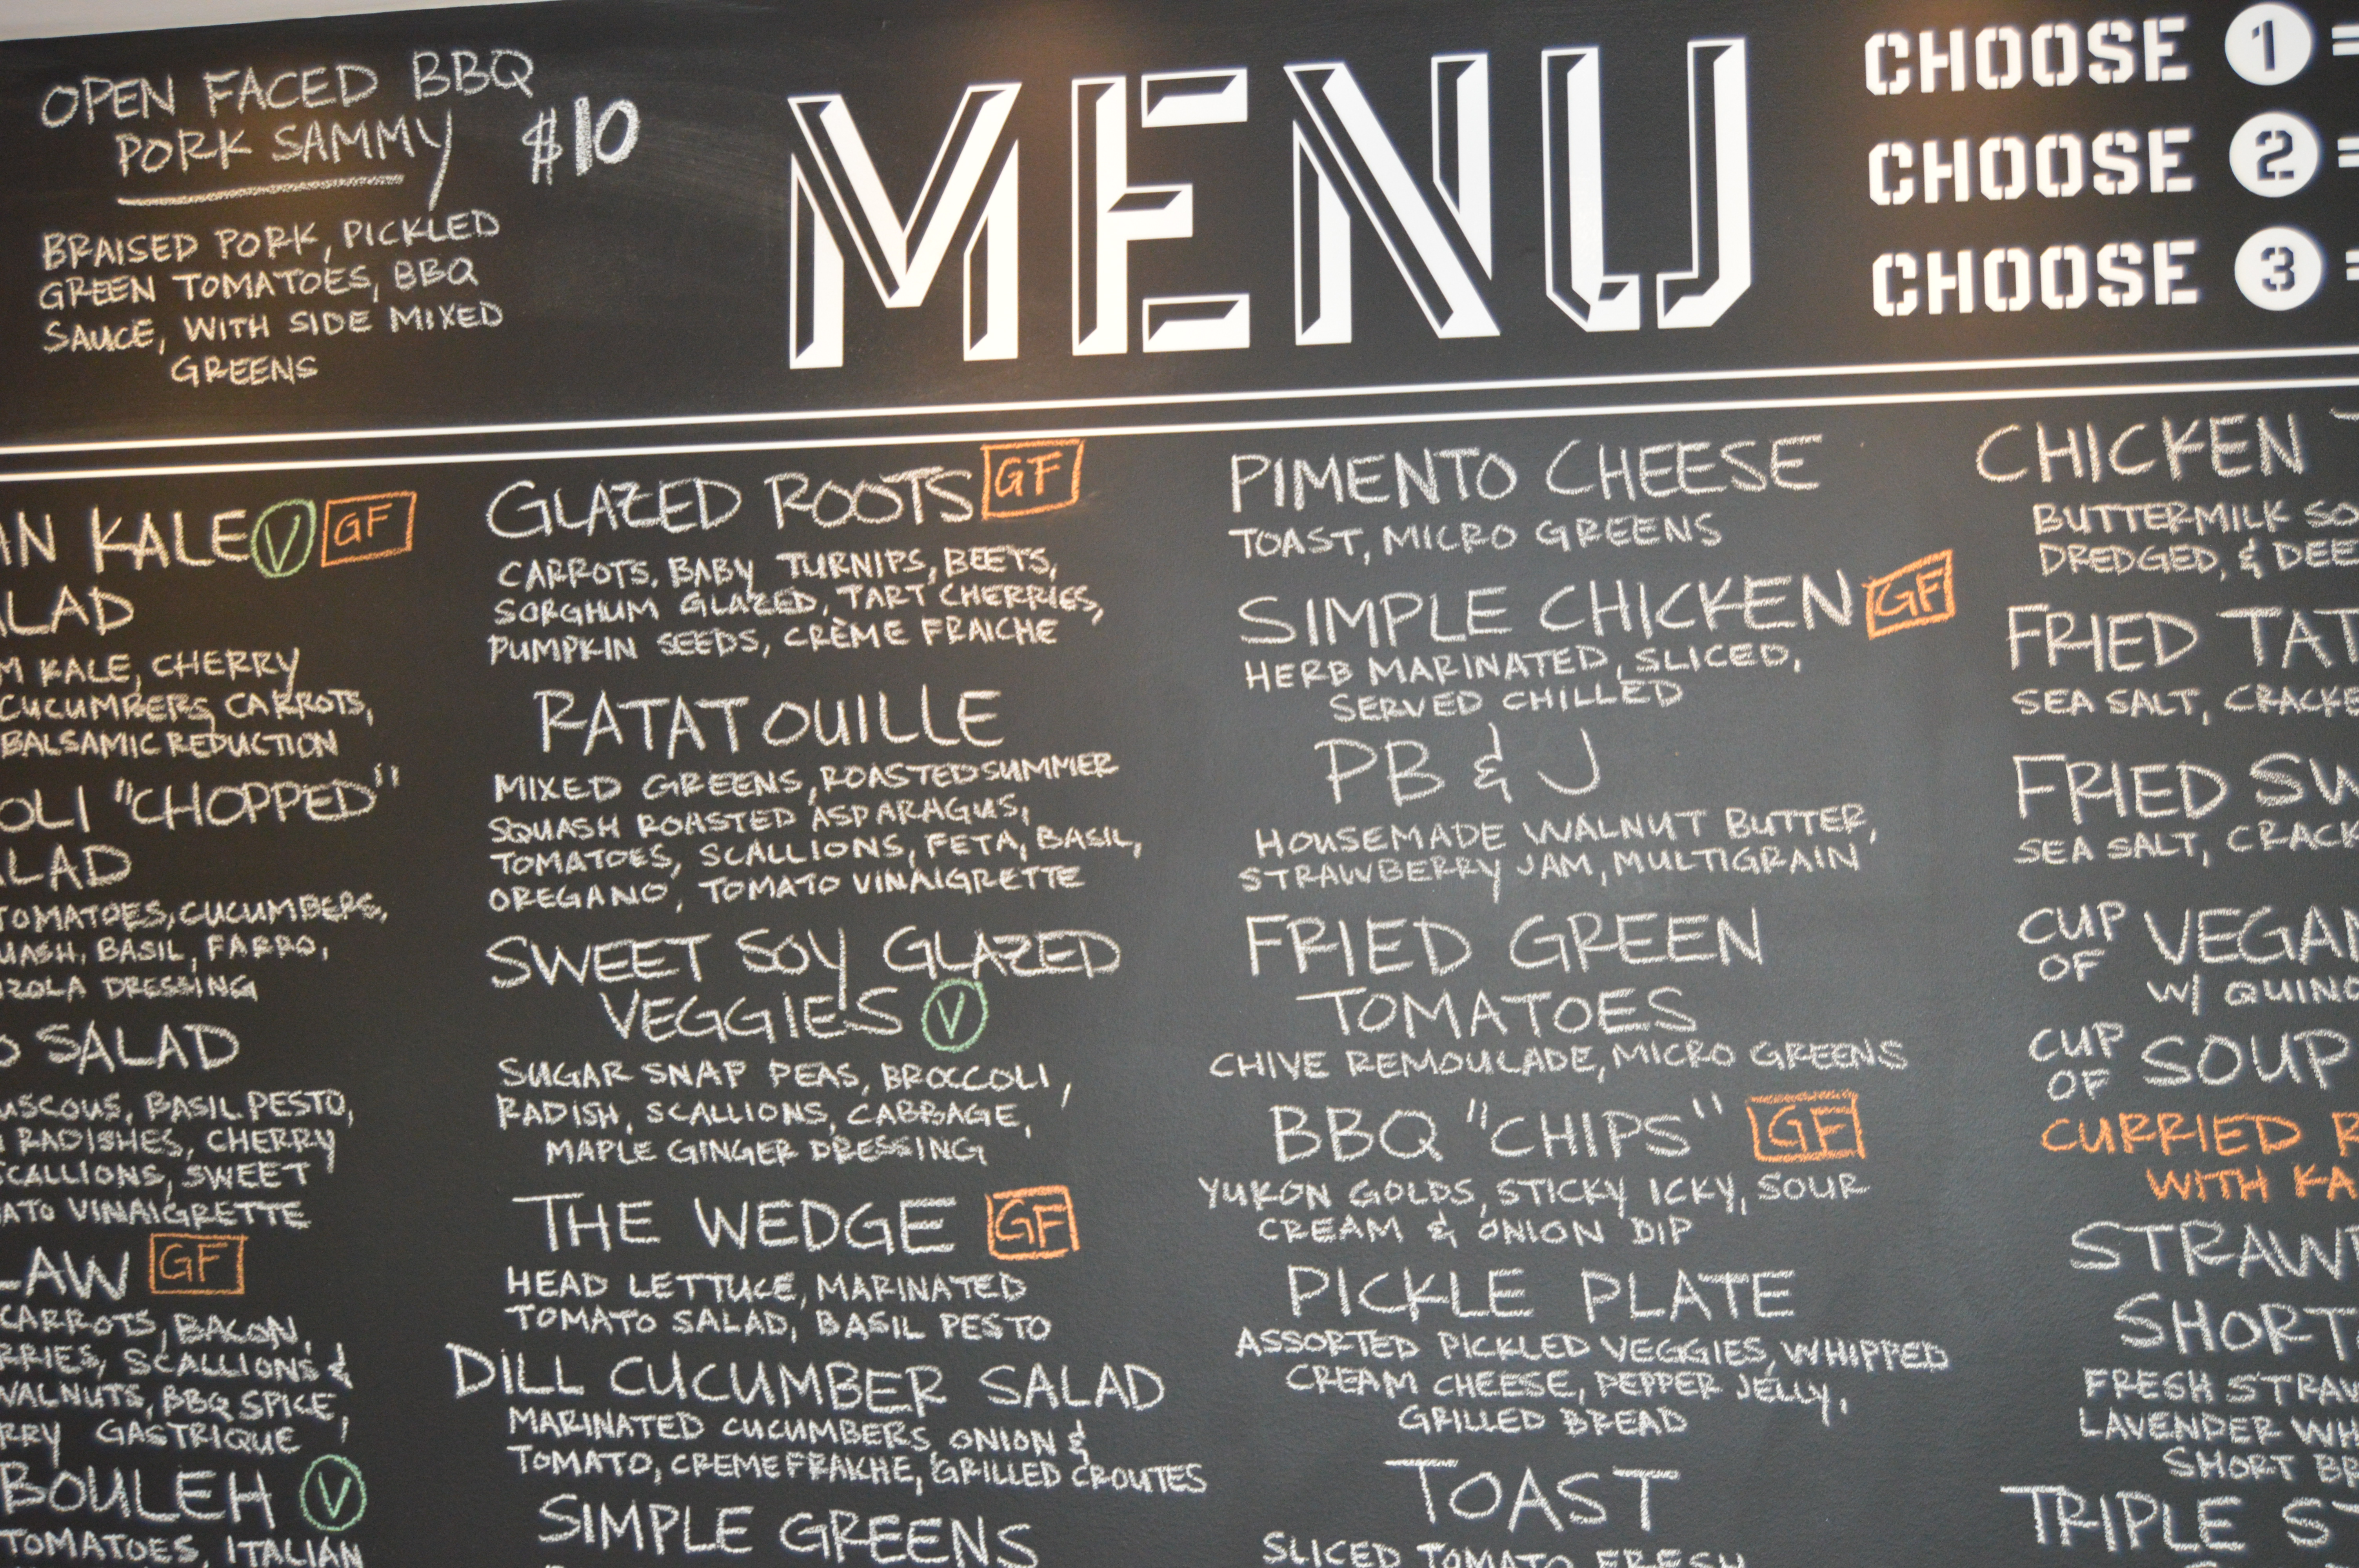 OPEN FACED BBQ
PORK SAMMY $10
BRAISED PORK, PICKLED
GREEN TOMATOES, BBQ
SAUCE, WITH SIDE MIXED
GREENS
MENU
CHOOSE 1 =
CHOOSE 2 =
CHOOSE 3 =
KALE V GF
KALE, CHERRY
CUCUMBERS, CARROTS,
BALSAMIC REDUCTION
"CHOPPED"
TOMATOES, CUCUMBERS,
BASIL, FARRO,
DRESSING
SALAD
BASIL PESTO,
RADISHES, CHERRY
SCALLIONS, SWEET
VINAIGRETTE
GF
CARROTS, BACON,
SCALLIONS &
WALNUTS, BBQ SPICE,
GASTRIQUE
V
TOMATOES, ITALIAN
GLAZED ROOTS GF
CARROTS, BABY TURNIPS, BEETS,
SORGHUM GLAZED, TART CHERRIES,
PUMPKIN SEEDS, CRÈME FRAICHE
RATATOUILLE
MIXED GREENS, ROASTED SUMMER
SQUASH ROASTED ASPARAGUS,
TOMATOES, SCALLIONS, FETA, BASIL,
OREGANO, TOMATO VINAIGRETTE
SWEET SOY GLAZED
VEGGIES V
SUGAR SNAP PEAS, BROCCOLI,
RADISH, SCALLIONS, CABBAGE,
MAPLE GINGER DRESSING
THE WEDGE GF
HEAD LETTUCE, MARINATED
TOMATO SALAD, BASIL PESTO
DILL CUCUMBER SALAD
MARINATED CUCUMBERS, ONION &
TOMATO, CREME FRAICHE, GRILLED CROUTES
SIMPLE GREENS
PIMENTO CHEESE
TOAST, MICRO GREENS
SIMPLE CHICKEN GF
HERB MARINATED, SLICED,
SERVED CHILLED
PB & J
HOUSEMADE WALNUT BUTTER,
STRAWBERRY JAM, MULTIGRAIN
FRIED GREEN
TOMATOES
CHIVE REMOULADE, MICRO GREENS
BBQ "CHIPS" GF
YUKON GOLDS, STICKY ICKY, SOUR
CREAM & ONION DIP
PICKLE PLATE
ASSORTED PICKLED VEGGIES, WHIPPED
CREAM CHEESE, PEPPER JELLY,
GRILLED BREAD
TOAST
SLICED TOMATO FRESH
CHICKEN
BUTTERMILK
DREDGED, &
FRIED
SEA SALT,
FRIED
SEA SALT,
CUP OF VEGAN
W/
CUP OF SOUP
CURRIED
WITH
FRESH
LAVENDER
SHORT
TRIPLE